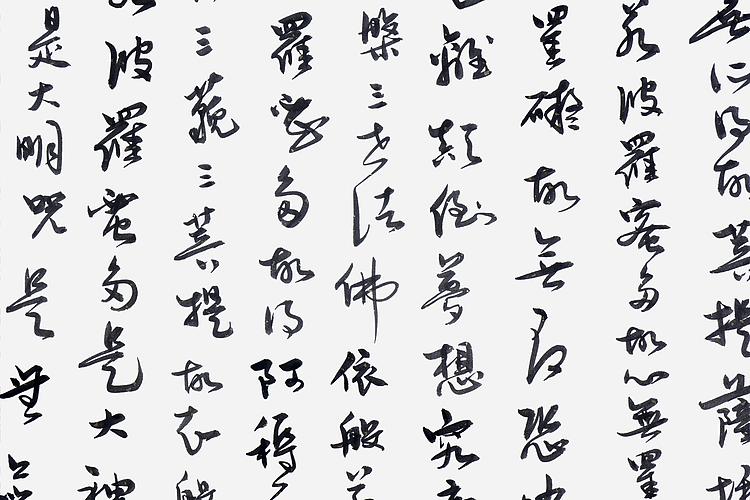 無所得故菩提薩埵
若波羅蜜多故心無罣
罣礙故無有恐怖
離顛倒夢想究竟
槃三世諸佛依般若
羅蜜多故得阿耨多
三藐三菩提故知般
若波羅蜜多是大神
是大明咒是無上